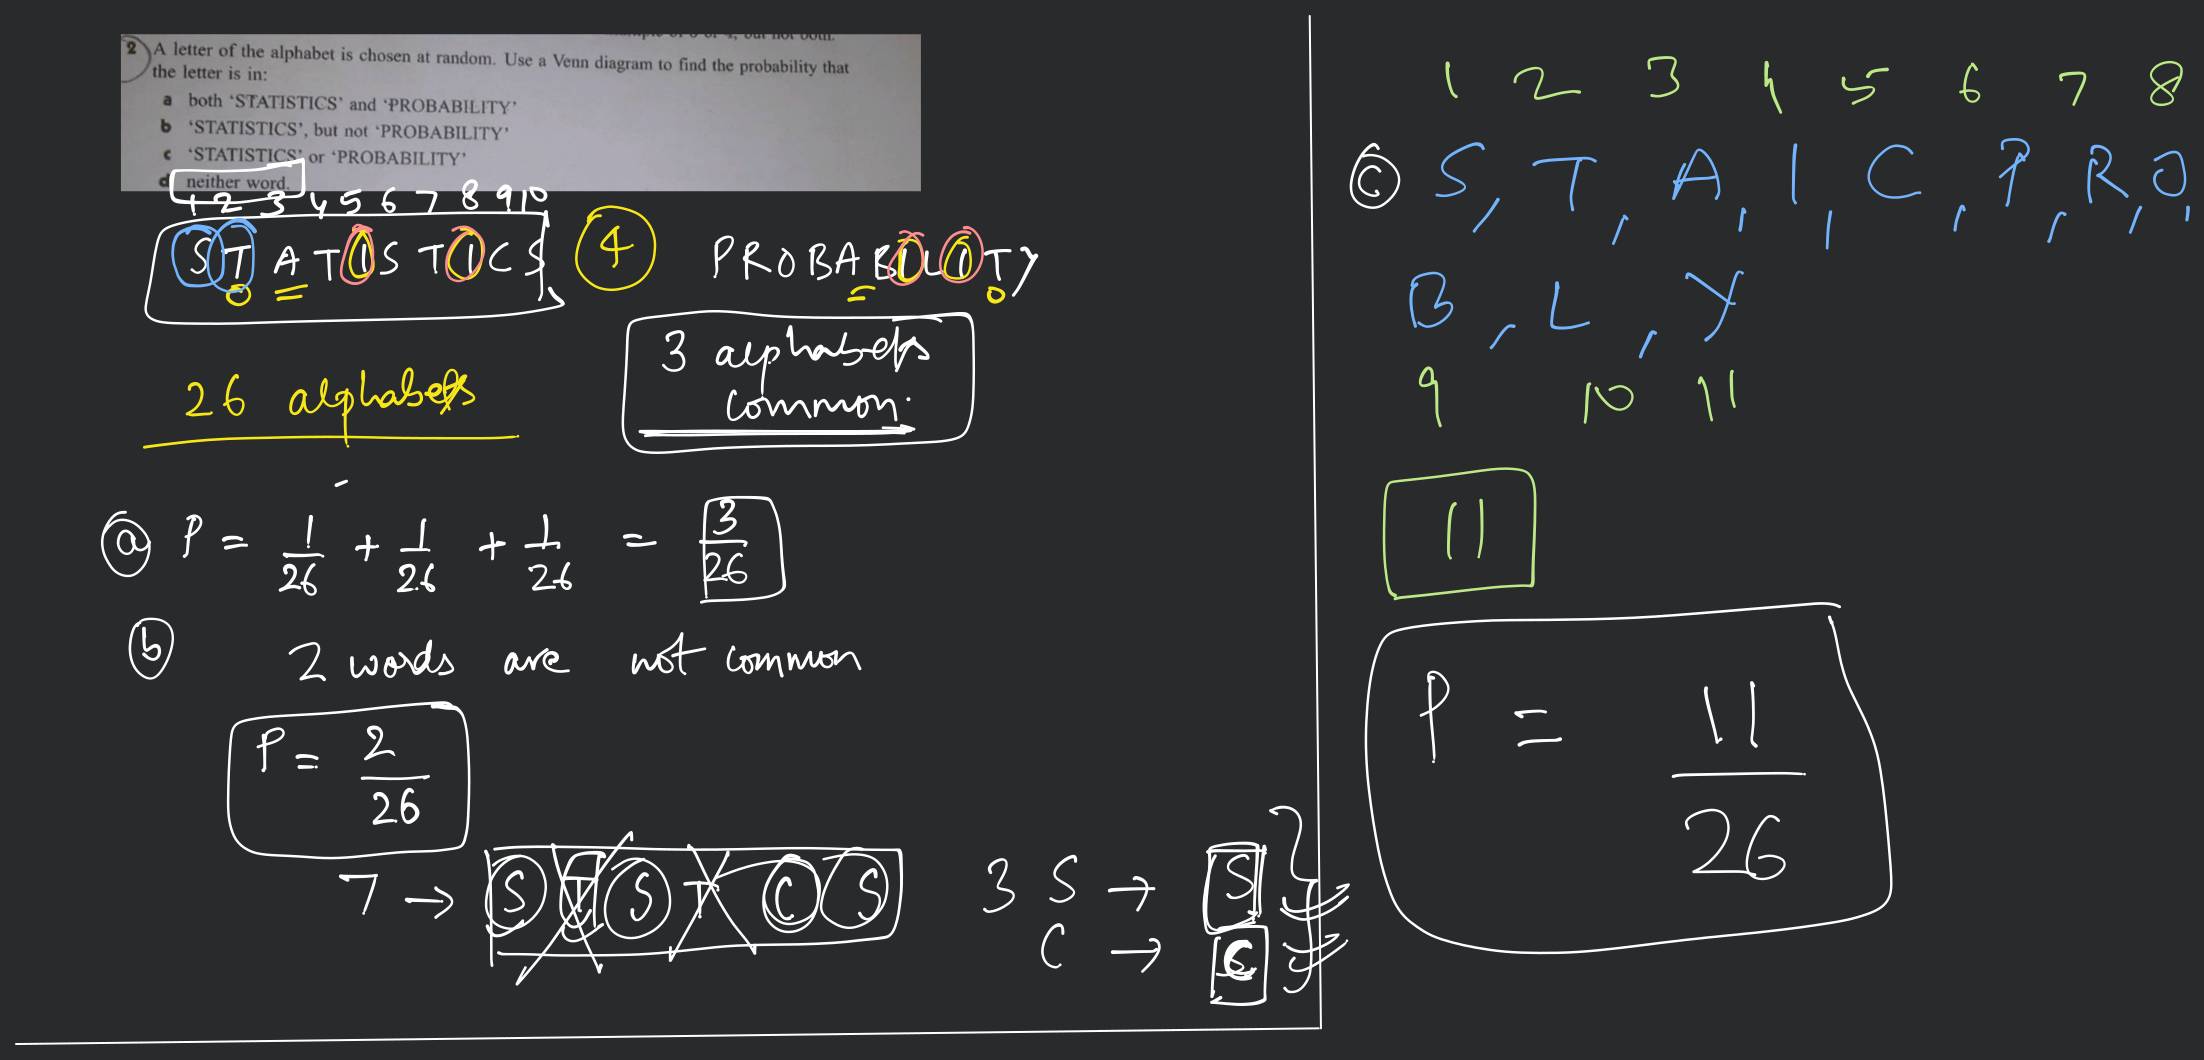 2 A letter of the alphabet is chosen at random. Use a Venn diagram to find the probability that
the letter is in:
a both 'STATISTICS' and 'PROBABILITY'
b 'STATISTICS', but not 'PROBABILITY'
c 'STATISTICS' or 'PROBABILITY'
d neither word.
1 2 3 4 5 6 7 8 9 10
STATISTICS 4 PROBABILITY
26 alphabets
3 alphabets
common.
a P = 1/26 + 1/26 + 1/26 = 3/26
b 2 words are not common
P = 2/26
7 → S T S T C S 3 S → S
C → C
1 2 3 4 5 6 7 8
c S, T, A, I, C, P, R, O,
B, L, Y
9 10 11
11
P = 11/26